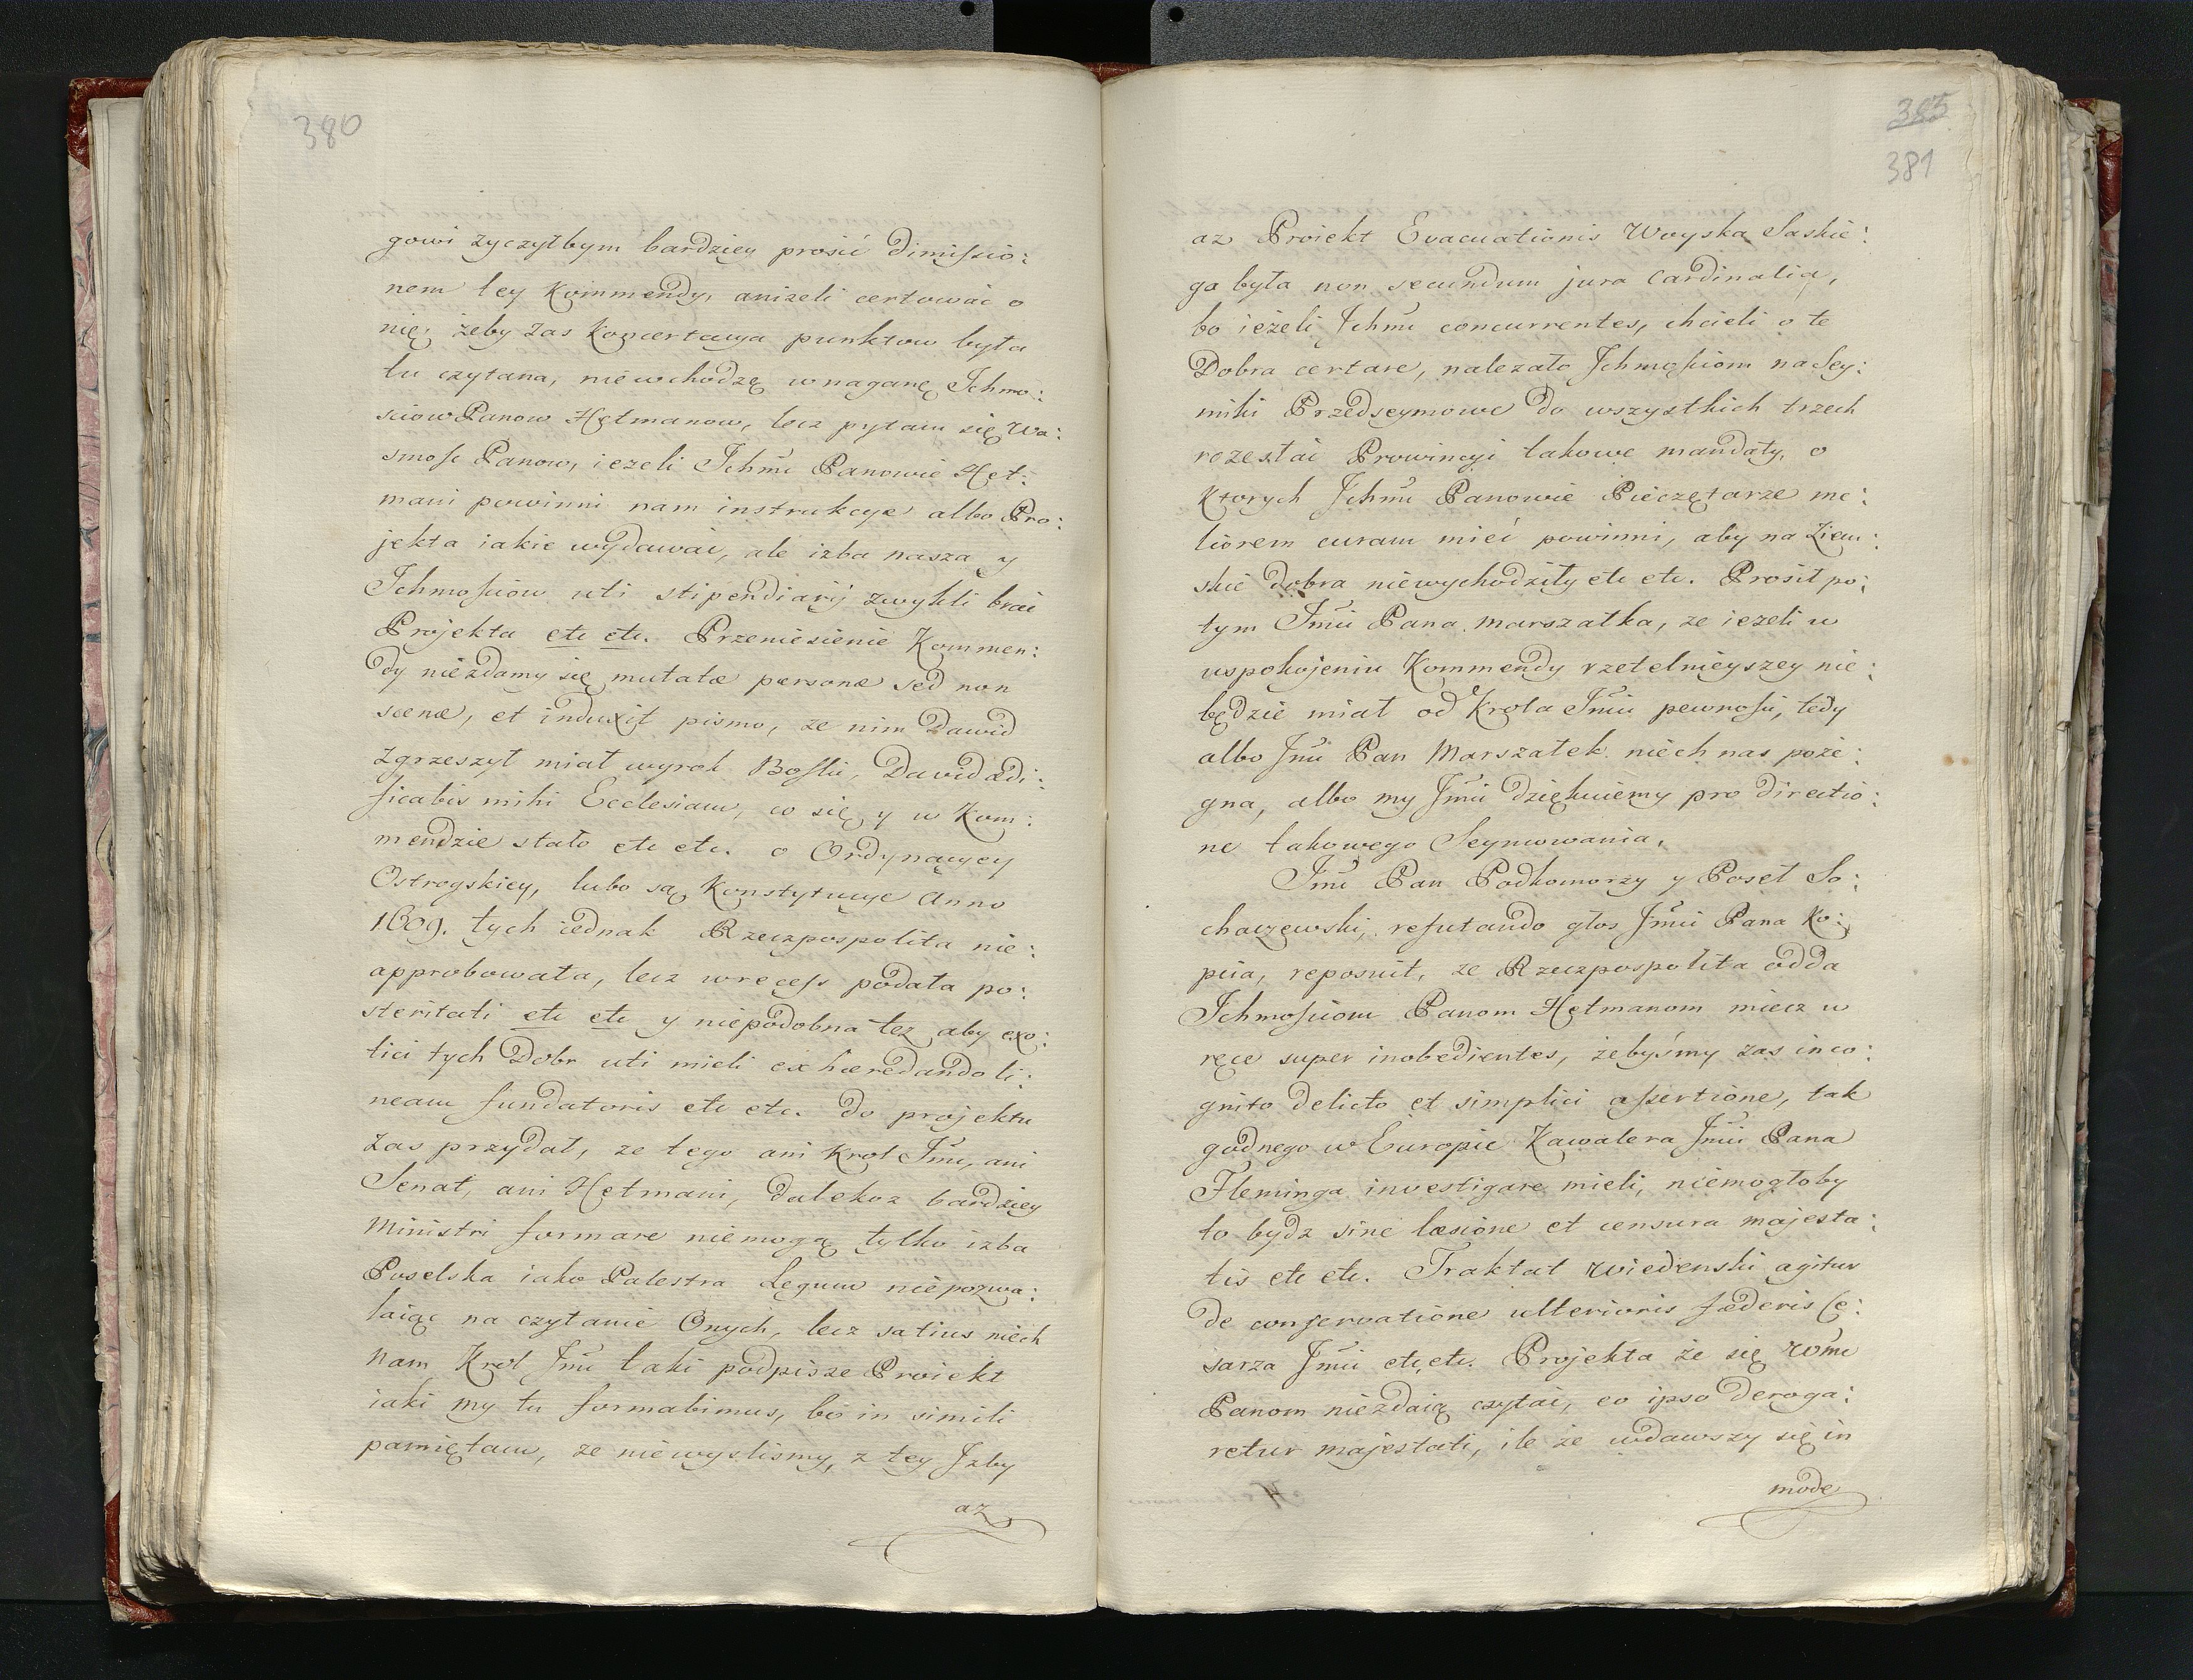 380
gowi zyczyłbym bardziey prosić dimissio:
nem tey Kommendy, anizeli certować o
nię; żeby zas Koncertacya punktow była
tu czytana, niewchodzę w naganę Ichmo:
sciow Panow Hetmanow, lecz pytam się Wa:
smosc Panow, iezeli Ichmć Panowie Het:
mani powinni nam instrukcye albo Pro:
jekta iakie wydawać, ale izba nasza y
Ichmościow uti stipendiarij zwykli brać
Projekta etc etc. Przeniesienie Kommen:
dy niezdamy się mutatæ personæ sed non
scenæ, et induxit pismo, ze nim Dawid
zgrzeszył miał wyrok Boski, David ædi:
ficabis mihi Ecclesiam, co się y w Kom:
mendzie stało etc etc. o Ordynacyey
Ostrogskiey, lubo są Konstytucye Anno
1609. tych iednak Rzeczpospolita nie:
approbowała, lecz w recess podała po:
steritati etc etc y niepodobna tez aby exo:
tici tych Dobr uti mieli exhæredando li:
neam fundatoris etc etc. do projektu
zas przydał, ze tego ani Krol Jmć, ani
Senat, ani Hetmani, dalekoz bardziey
Ministri formare niemogą tylko izba
Poselska iako Palestra Legum niepozwa:
laiąc na czytanie Onych, lecz satius niech
nam Krol Jmć taki podpisze Proiekt
iaki my tu formabimus, bo in simili
pamiętam, ze niewyslismy, z tey Jzby
az
385
381
az Proiekt Evacuationis Woyska Saskie:
go była non secundum jura Cardinalia,
bo ieżeli Ichmć concurrentes, chcieli o te
Dobra certare, nalezało Jchmościom na Sey:
miki Przedseymowe do wszystkich trzech
rozesłać Prowincyi takowe mandaty, o
ktorych Jchmć Panowie Pieczętarze me:
liorem curam mieć powinni, aby na Ziem:
skie dobra niewychodziły etc etc. Prosił po:
tym Jmći Pana Marszałka, ze iezeli w
uspokojeniu Kommendy rzetelnieyszey nie:
będzie miał od Krola Jmći pewności, tedy
albo Jmć Pan Marszałek niech nas poże:
gna, albo my Jmći dziękuiemy pro directio:
ne takowego Seymowania.
Jmć Pan Podkomorzy y Poseł So:
chaczewski, refutando głos Jmći Pana Ko:
pcia, reposuit, ze Rzeczpospolita odda
Ichmościom Panom Hetmanom miecz w
ręce super inobedientes, żebyśmy zas inco:
gnito delicto et simplici assertione, tak
godnego w Europie Kawalera Jmći Pana
Fleminga investigare mieli, niemogłoby
to bydz sine læsione et censura majesta:
tis etc etc. Traktat Wiedenski agitur
de conservatione ulterioris fæderis Ce:
sarza Jmći etc etc. Projekta że się Wmc
Panom niezdaią czytać, eo ipso deroga:
retur majestati, ile że wdawszy się in
mode